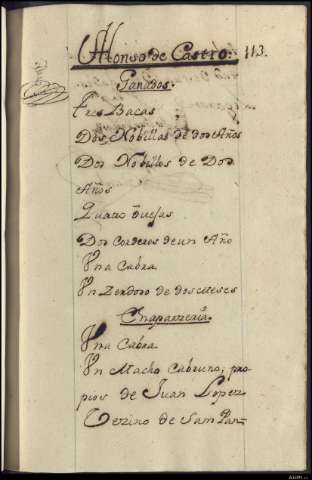 Alonso de Castro. 113.
Ganados.
tres Bacas
Dos Nobillas de dos Años
Dos Nobillos de Dos
Años
Quatro obejas
Dos Corderos de un Año
Vna Cabra
Vn de dos meses
Chaparreria
Vna Cabra
Vn Macho Cabruno, pro
pios de Juan Lopez
Vezino de Sam Pan